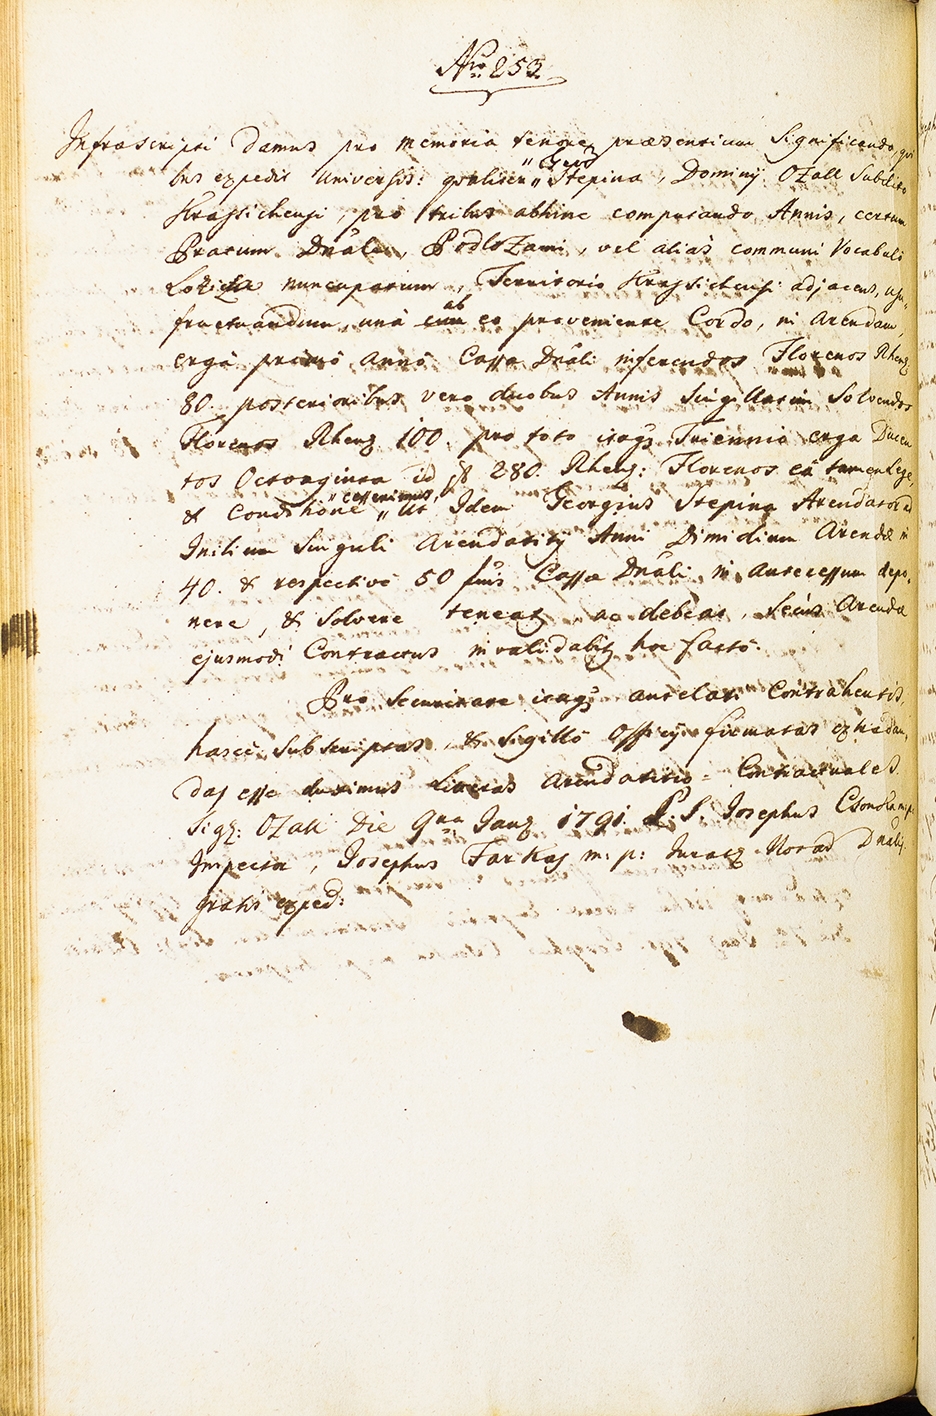 Nro 253.
Infrascripti damus pro memoria tenore præsentium Significando, qui
bus expedit Universis: qualiter „ Georgio Stepina, Dominij Ozall Subdito
Krassichensi, pro tribus abhinc computando Annis, certum
Pratum Dnâle, Podlozami, vel aliàs communi Vocabulo
Loxicza nuncupatum, Territorio Krassichensi adjacens, usu-
fructuandum, unà cum ab eo proveniente Cordo, in Arendam,
ergà primô Annô Cassa Dnâli inferendos Florenos Rhen
80. posterioribus vero duobus Annis Singillatim Solvendos
Florenos Rhen 100. pro toto itaq Triennio erga Ducen
tos Octoaginta id est 280. Rhen: Florenos eâ tamen Lege,
& Conditione „ cesserimus „ Ut Idem Georgius Stepina Arendator ad
Initium Singuli Arendatitij Anni Dimidium Arendæ in
40. & respectivè 50 fnis Cassa Dnâli in antecessum depo-
nere, & Solvere teneat ac debeat, Secùs Arenda
ejusmodi Contractus invalidabit hoc facto.
Pro Securitate itaq antelati Contrahentis,
hasce Subscriptas, & Sigillô Officij firmatas extradan,
das esse duximus Literas Arendatitio-Contractuales.
Sig: Ozall Die 9na Jan 1791. L. S. Josephus Csonoka mp
Inspector, Josephus Farkas m: p: Jurat Norad Dnalis
gratis exped: